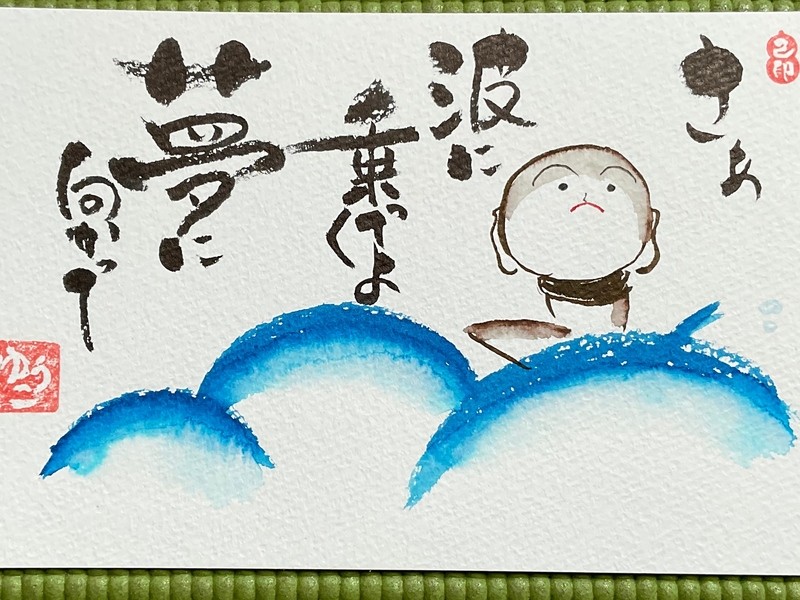 さぁ
波に
乗ってくよ
夢に
向かって
ゆうこ